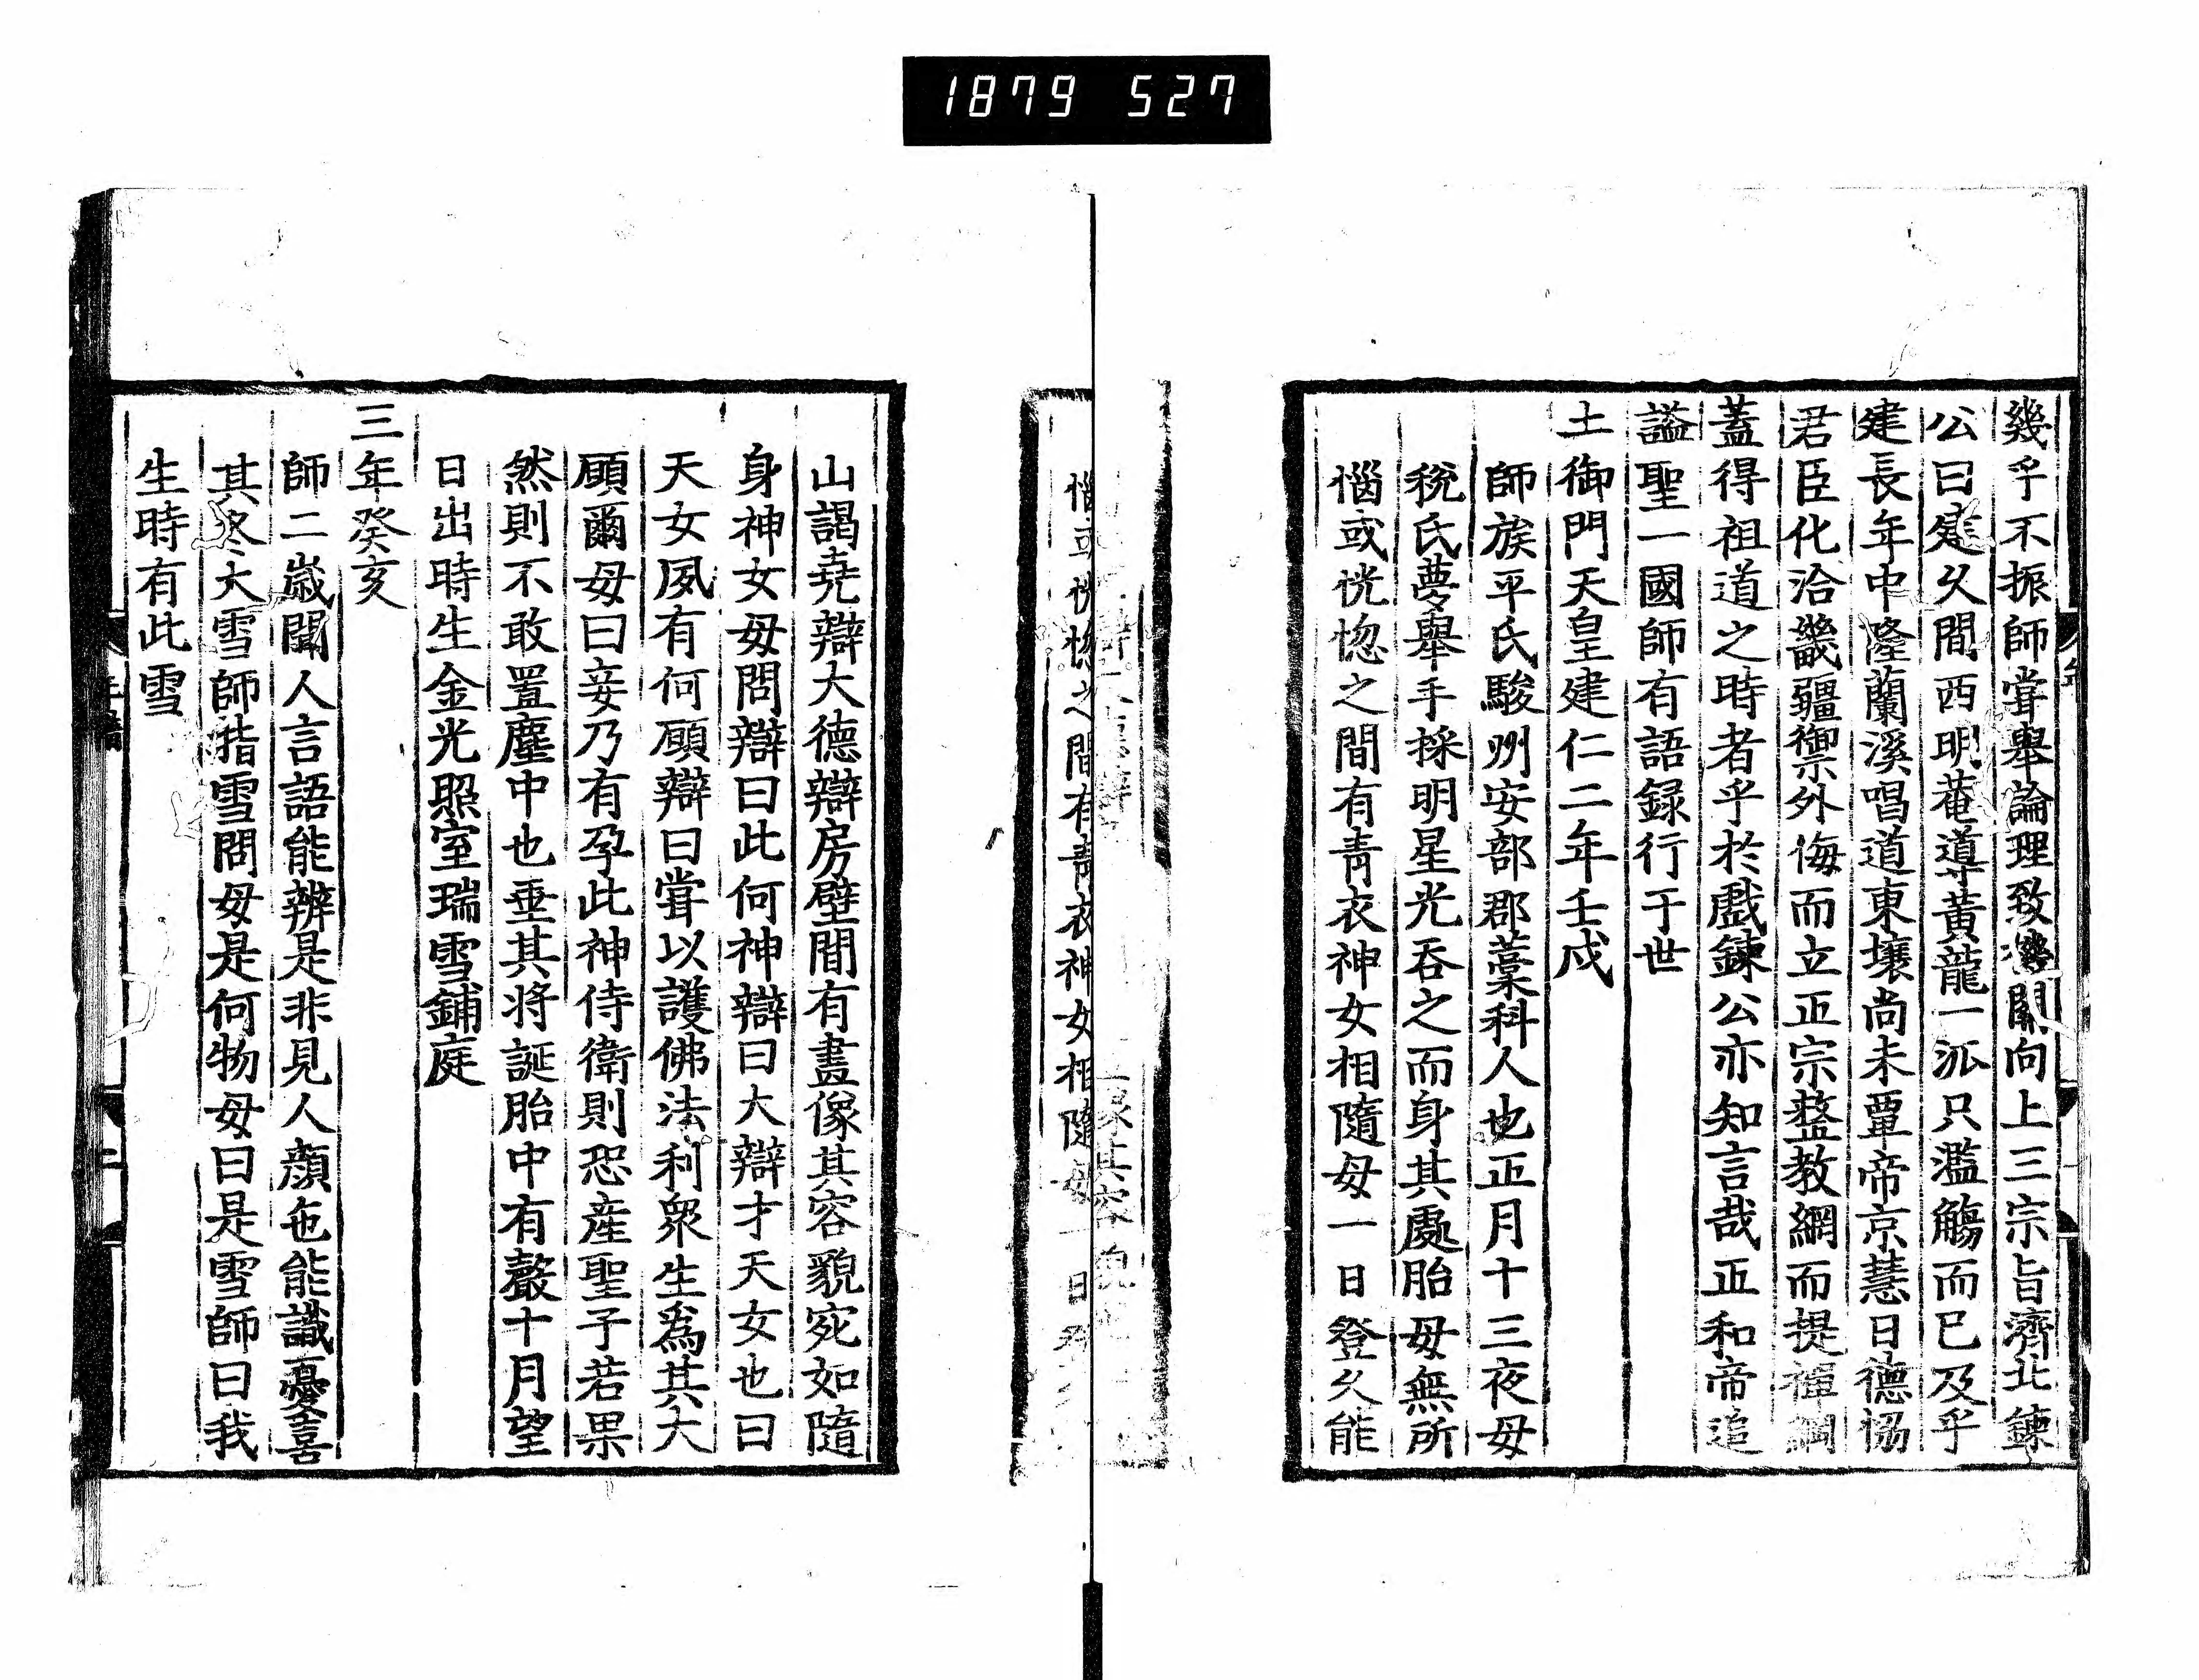 1879 527
幾乎不振師甞舉論理致機關向上三宗旨濟北鍊
公曰建久間西明菴導黃龍一派只濫觴而已及乎
建長年中隆蘭溪唱道東壤尚未覃帝京慧日德協
君臣化洽畿疆禦外侮而立正宗整教網而提禪綱
蓋得祖道之時者乎於戲鍊公亦知言哉正和帝追
謚聖一國師有語録行于世
土御門天皇建仁二年壬戌
師族平氏駿州安部郡藁科人也正月十三夜母
稅氏夢舉手採明星光吞之而身其處胎母無所
惱或恍惚之間有青衣神女相隨母一日登久能
惱或恍惚之間有青衣神女相隨母一日
山謁堯辯大德辯房壁間有畫像其容貌宛如隨
身神女母問辯曰此何神辯曰大辯才天女也曰
天女夙有何願辯曰甞以護佛法利衆生爲其大
願爾母曰妾乃有孕此神侍衛則恐産聖子若果
然則不敢置塵中也垂其将誕胎中有聲十月望
日出時生金光照室瑞雪鋪庭
三年癸亥
師二歲聞人言語能辨是非見人顏色能識憂喜
其冬大雪師指雪問母是何物母曰是雪師曰我
生時有此雪